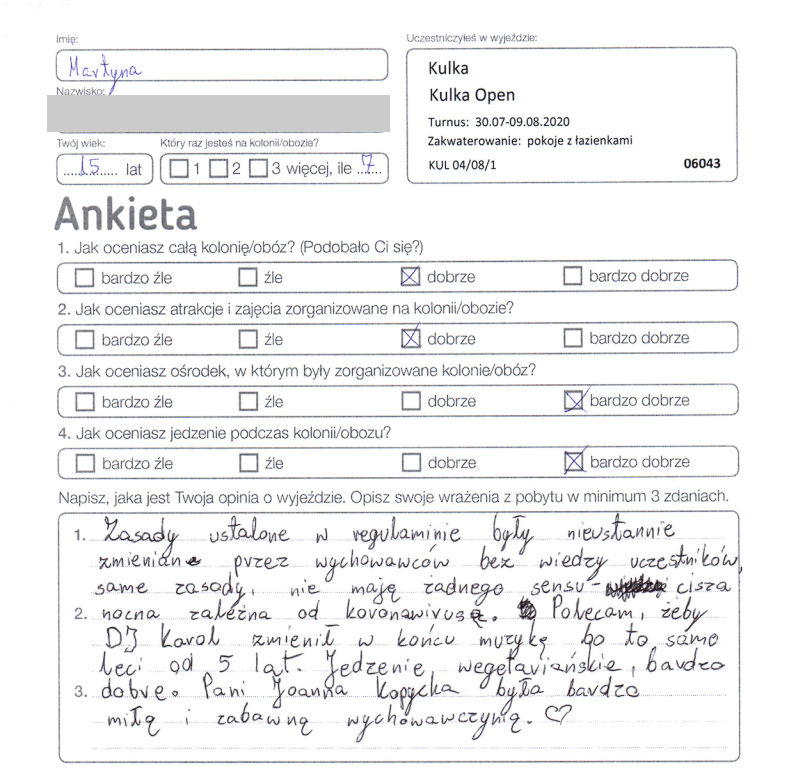 Imię:
Martyna
Nazwisko:
Twój wiek:
15 lat
Który raz jesteś na kolonii/obozie?
1 2 3 więcej, ile 7
Uczestniczyłeś w wyjeździe:
Kulka
Kulka Open
Turnus: 30.07-09.08.2020
Zakwaterowanie: pokoje z łazienkami
KUL 04/08/1 06043
Ankieta
1. Jak oceniasz całą kolonię/obóz? (Podobało Ci się?)
bardzo źle źle dobrze bardzo dobrze
2. Jak oceniasz atrakcje i zajęcia zorganizowane na kolonii/obozie?
bardzo źle źle dobrze bardzo dobrze
3. Jak oceniasz ośrodek, w którym były zorganizowane kolonie/obóz?
bardzo źle źle dobrze bardzo dobrze
4. Jak oceniasz jedzenie podczas kolonii/obozu?
bardzo źle źle dobrze bardzo dobrze
Napisz, jaka jest Twoja opinia o wyjeździe. Opisz swoje wrażenia z pobytu w minimum 3 zdaniach.
1. Zasady ustalone w regulaminie były nieustannie
zmieniane przez wychowawców bez wiedzy uczestników,
same zasady, nie mają żadnego sensu - cisza
2. nocna zależna od koronawirusa. Polecam, żeby
DJ Karol zmienił w końcu muzykę bo to samo
leci od 5 lat. Jedzenie, wegetariańskie, bardzo
3. dobre. Pani Joanna Kopycka była bardzo
miłą i zabawną wychowawczynią. ♡